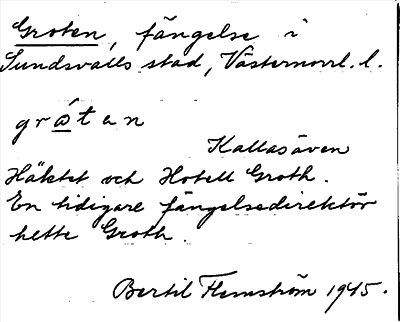 Groten, fängelse i
Sundsvalls stad, Västernorrl. l.
grótan
Kallas även
Häktet och Hotell Groth.
En tidigare fängelsedirektör
hette Groth.
Bertil Flemström 1945.